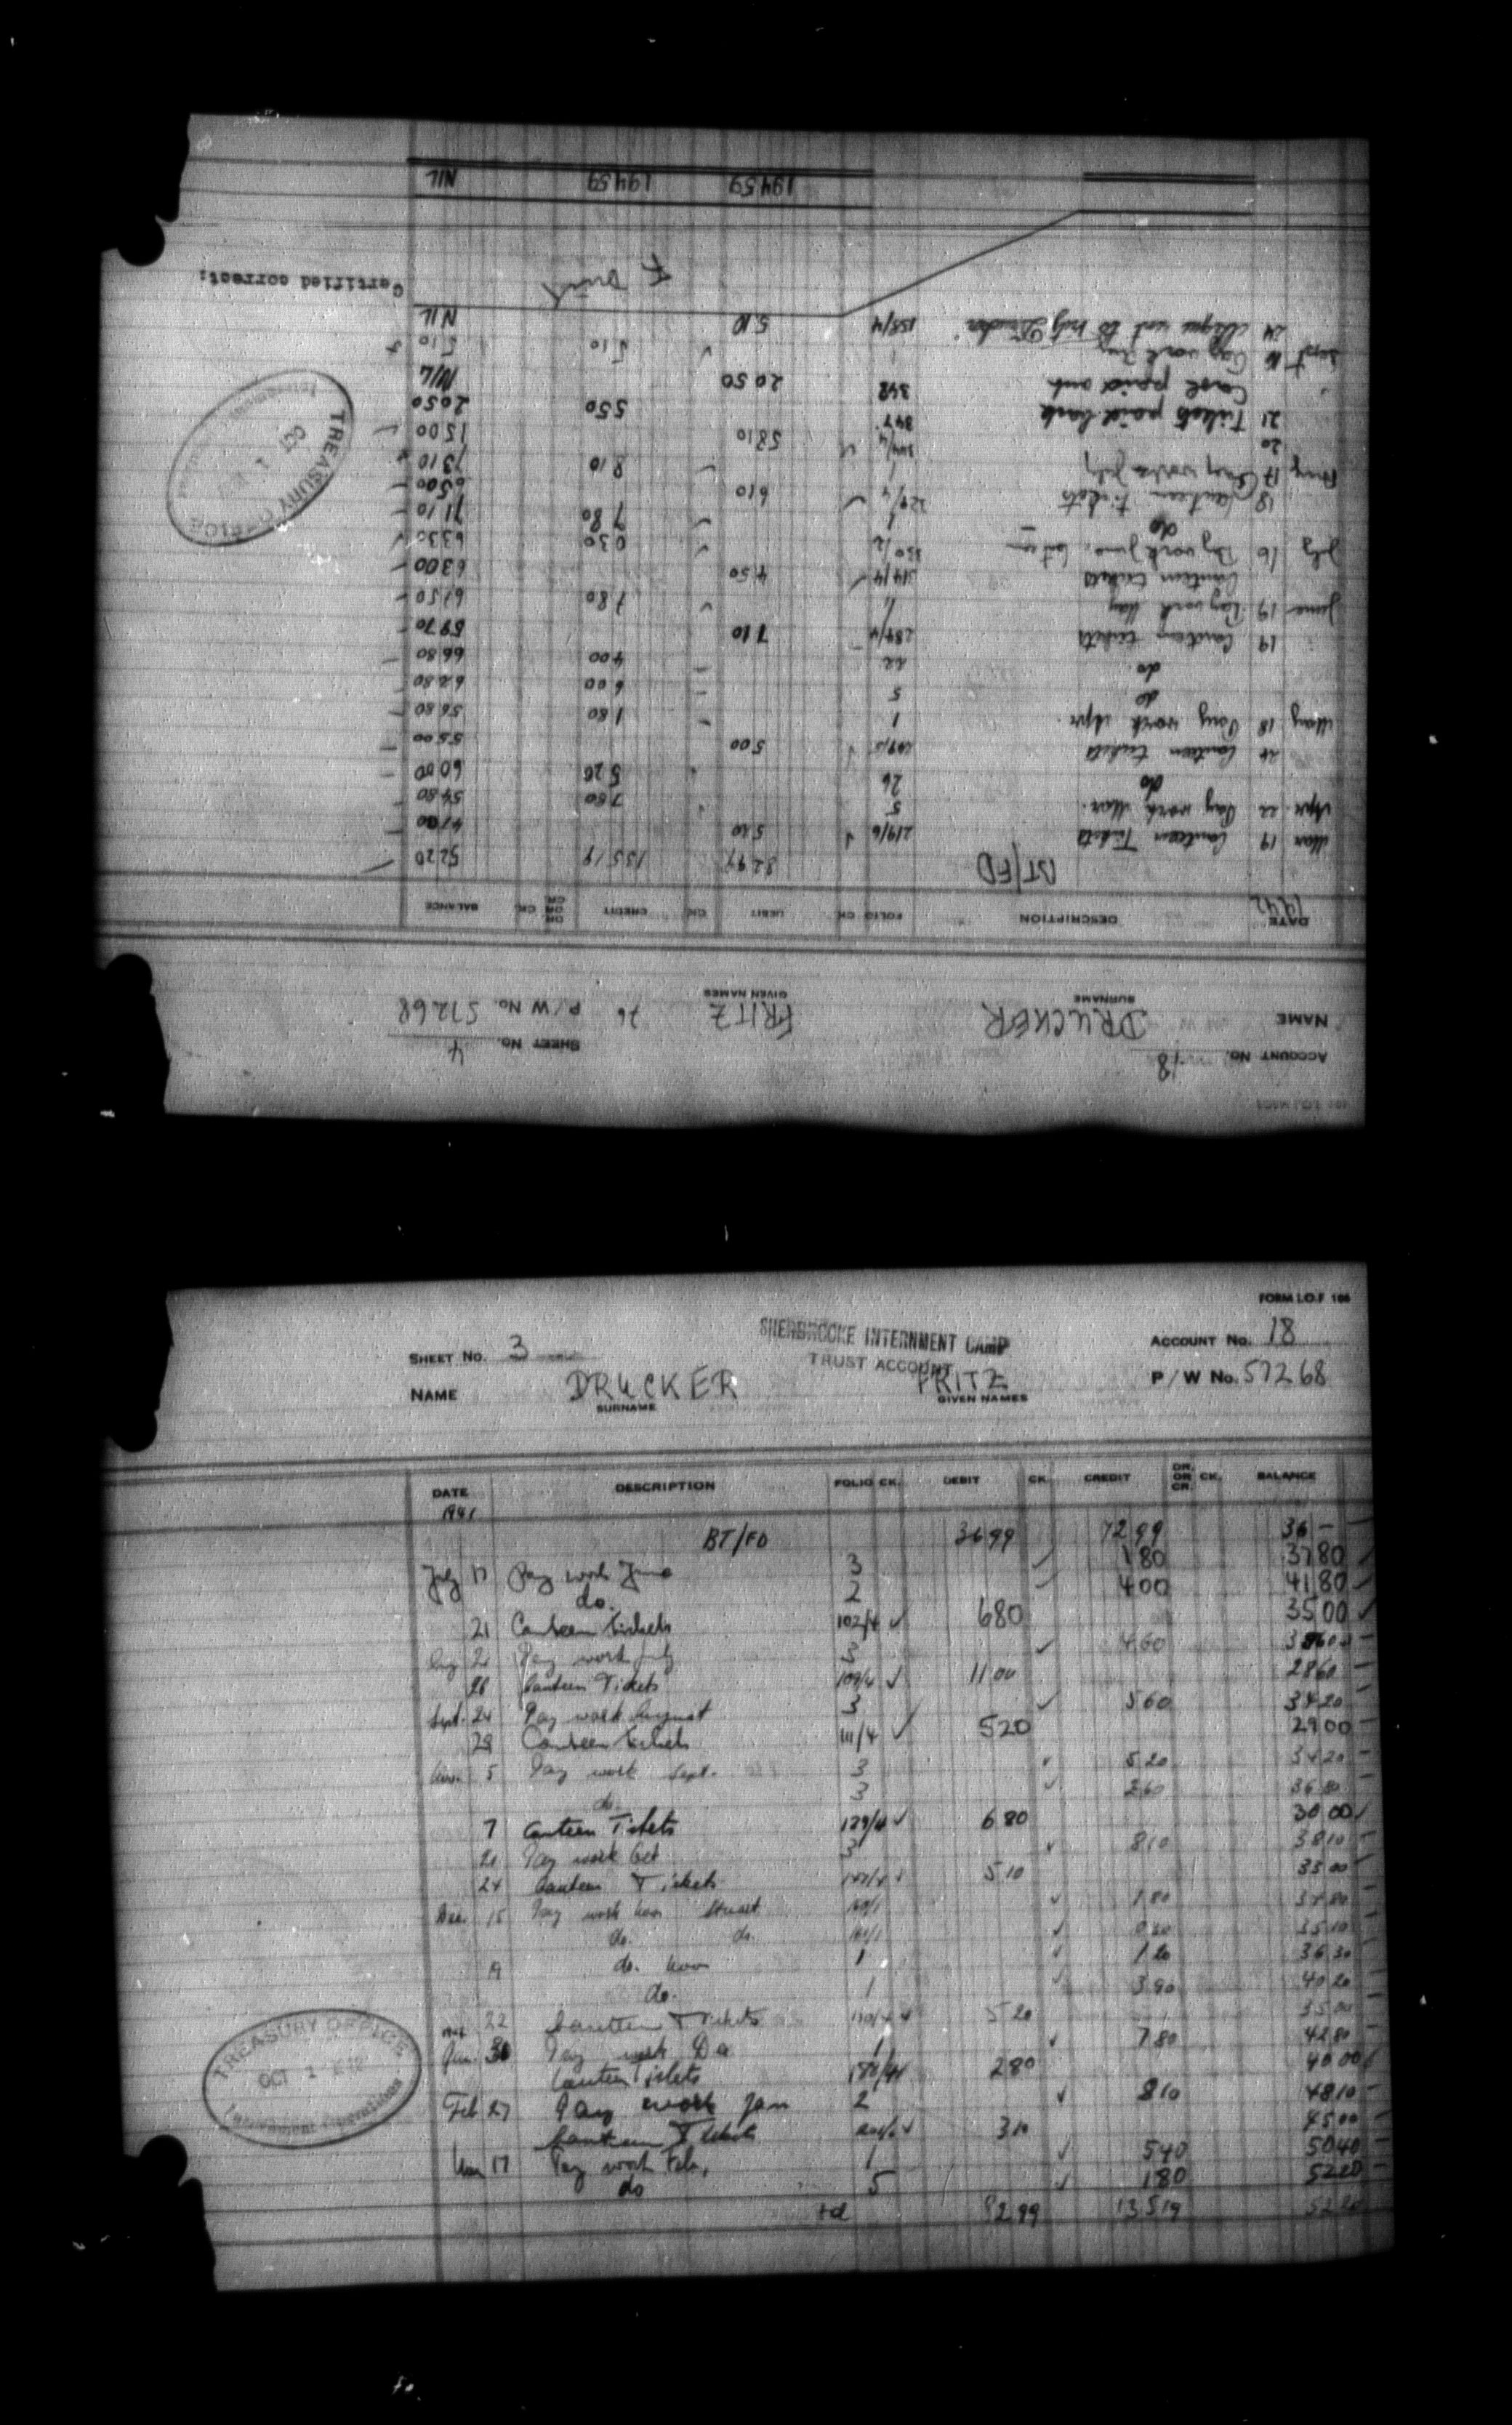 ACCOUNT No. 18
SHEET No. 4
NAME DRUCKER FRITZ 76 P/W No. 57268
SURNAME GIVEN NAMES
DATE DESCRIPTION FOLIO CK. DEBIT CK. CREDIT DR. OR CR. CK. BALANCE
1942
BT/FD 82 99 135 19 52 20
Mar 19 Canteen Tickets 219/6 5 20 47 00
Apr. 22 Pay work Mar. 5 7 80 54 80
do 26 5 20 60 00
24 Canteen tickets 5 00 55 00
May 18 Pay work Apr. 1 1 80 56 80
do 5 6 00 62 80
do. 22 4 00 66 80
19 Canteen tickets 284/4 7 10 59 70
June 19 Pay work May 11 7 80 67 50
Canteen tickets 314/4 4 50 63 00
July 16 Pay work June. 0 30 63 30
do 1 7 80 71 10
18 Canteen tickets 329/4 6 10 65 00
Aug 17 Pay work July 1 8 10 73 10
20 344/4 58 10 15 00
21 Tickets paid back 347 5 50 20 50
Cash paid out 348 20 50 NIL
Sept 16 Pay work Aug 1 5 10 5 10
24 Cheque sent to 158/4 5 10 NIL
Certified correct:
194 59 194 59 NIL
TREASURY OFFICE
OCT 1
FORM I.O.F 106
SHERBROOKE INTERNMENT CAMP
TRUST ACCOUNT
ACCOUNT No. 18
SHEET No. 3
NAME DRUCKER FRITZ P/W No. 57268
SURNAME GIVEN NAMES
DATE DESCRIPTION FOLIO CK. DEBIT CK. CREDIT DR. OR CR. CK. BALANCE
1941
BT/FD 36 99 72 99 36 –
July 17 Pay work June 3 1 80 37 80
do. 2 4 00 41 80
21 Canteen tickets 102/4 6 80 35 00
Aug 21 Pay work July 3 4 60 39 60
26 Canteen Tickets 109/4 11 00 28 60
Sept. 24 Pay work August 3 5 60 34 20
29 Canteen tickets 111/4 5 20 29 00
Nov. 5 Pay work Sept. 3 5 20 34 20
do. 3 2 60 36 80
7 Canteen Tickets 129/4 6 80 30 00
21 Pay work Oct 3 8 10 38 10
24 Canteen Tickets 5 10 33 00
Dec. 15 Pay work Nov 1 80 34 80
do. do. 0 30 35 10
19 do. Nov 1 1 20 36 30
do. 1 3 90 40 20
22 Canteen Tickets 5 20 35 00
Jan. 30 Pay work Dec 1 7 80 42 80
Canteen Tickets 2 80 40 00
Feb 27 Pay work Jan 2 8 10 48 10
Canteen Tickets 3 10 45 00
Mar 17 Pay work Feb. 1 5 40 50 40
do 5 1 80 52 20
82 99 135 19 52 20
TREASURY OFFICE
OCT 1 1942
Internment Operations